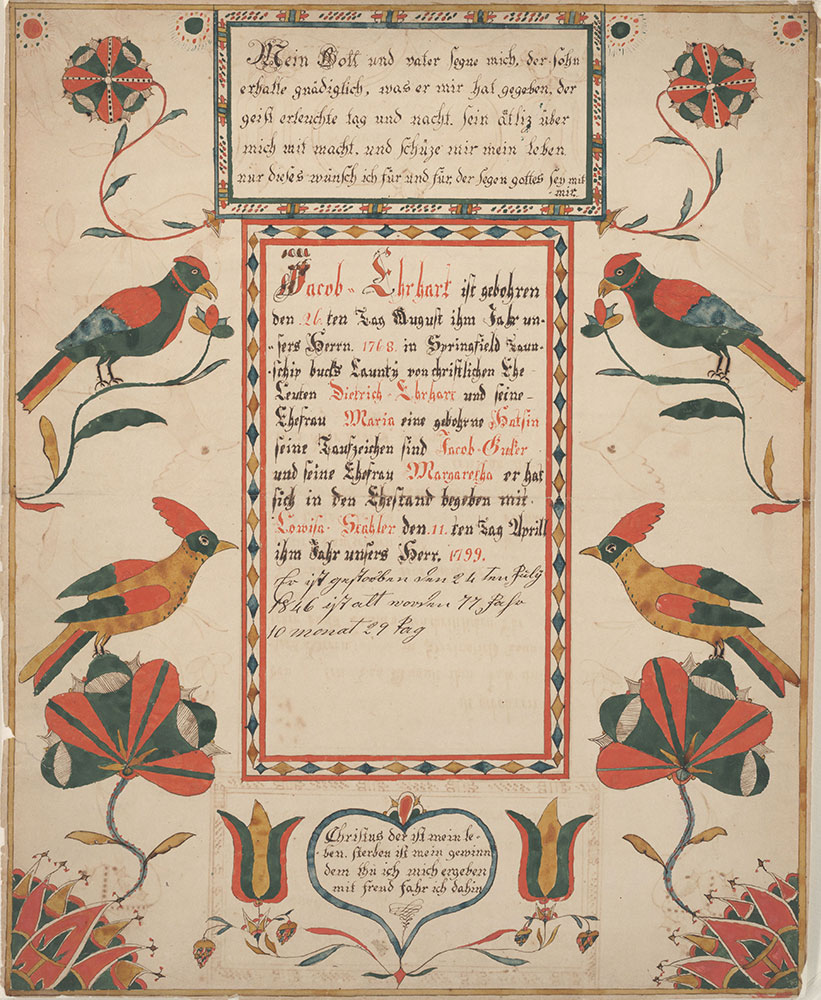 Mein Gott und vater segne mich, der sohn
erhalte gnädiglich, was er mir hat gegeben, der
geist erleuchte tag und nacht, sein ätliz über
mich mit macht, und schüze mir mein leben
nur dieses wünsch ich für und für, der segen gottes sey mit
mir
Jacob Ehrhart ist gebohren
den 26.ten Tag August ihm Jahr un-
sers Herrn. 1768. in Springfield Taun-
schip bucks Caunty von christlichen Ehe-
Leuten Dietrich Ehrhart und seine
Ehefrau Maria eine gebohrne Hatsin
seine Taufzeichen sind Jacob Guker
und seine Ehefrau Margaretha er hat
sich in den Ehestand begeben mit
Lowisa Stähler den 11.ten Tag Aprill
ihm Jahr unsers Herr. 1799.
Er ist gestorben den 24 ten July
1846 ist alt worden 77 Jahr
10 monat 29 Tag
Christus der ist mein le-
ben, sterben ist mein gewinn
dem thu ich mich ergeben
mit freud fahr ich dahin